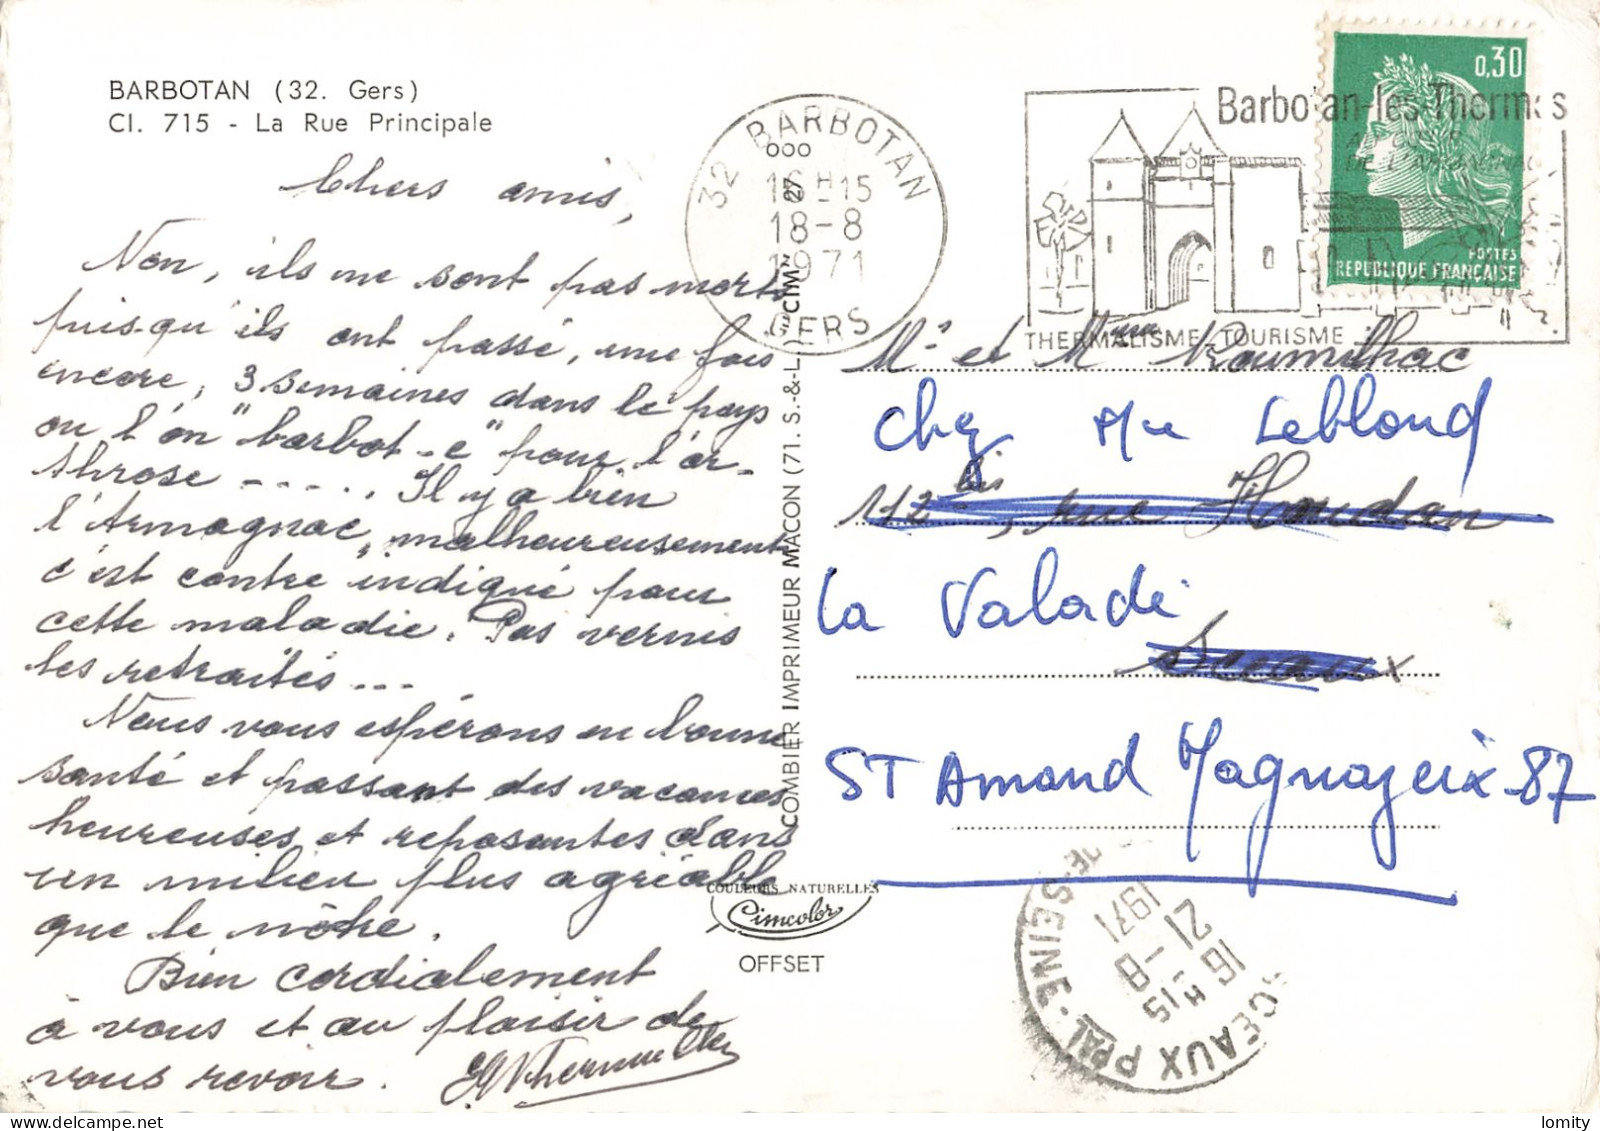 BARBOTAN (32. Gers)
Cl. 715 - La Rue Principale
Chers amis,
Non, ils ne sont pas morts
puisqu'ils ont passé, une fois
encore, 3 semaines dans le pays
ou l'on "barbot-e" pour l'ar-
throse ----. Il y a bien
l'Armagnac, malheureusement
c'est contre indiqué pour
cette maladie. Pas vernis
les retraités...
Nous vous espérons en bonne
santé et passant des vacances
heureuses et reposantes dans
un milieu plus agréable
que le nôtre.
Bien cordialement
à vous et au plaisir de
vous revoir.
32 BARBOTAN
000
27
16H15
18-8
1971
GERS
COMBIER IMPRIMEUR MACON (71. S.-&-L.) "CIM"
COULEURS NATURELLES
Cimcolor
OFFSET
Barbotan-les-Thermes
THERMALISME-TOURISME
0,30
POSTES
REPUBLIQUE FRANÇAISE
Mr et Mme Roumilhac
Chez Mme Leblond
112 bis, rue Houdan
La Valade
Sceaux
ST Amand Magnazeix 87
SCEAUX PPAL
16H15
21-8
1971
DE-SEINE
lomity